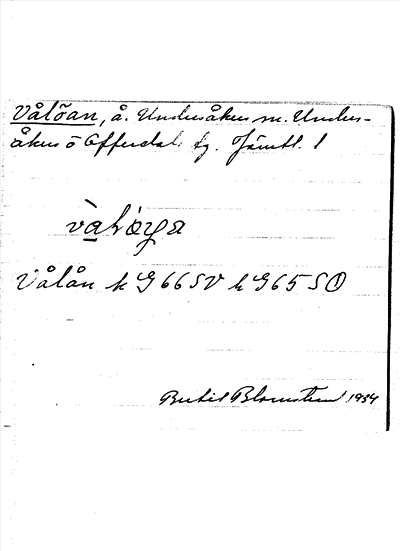 Vålöan, å. Undersåkers sn. Unders-
åkers o Offerdals tg. Jämtl. l
Vålån k G 66 SV k G 65 SO
Bertil Blomstrand 1934